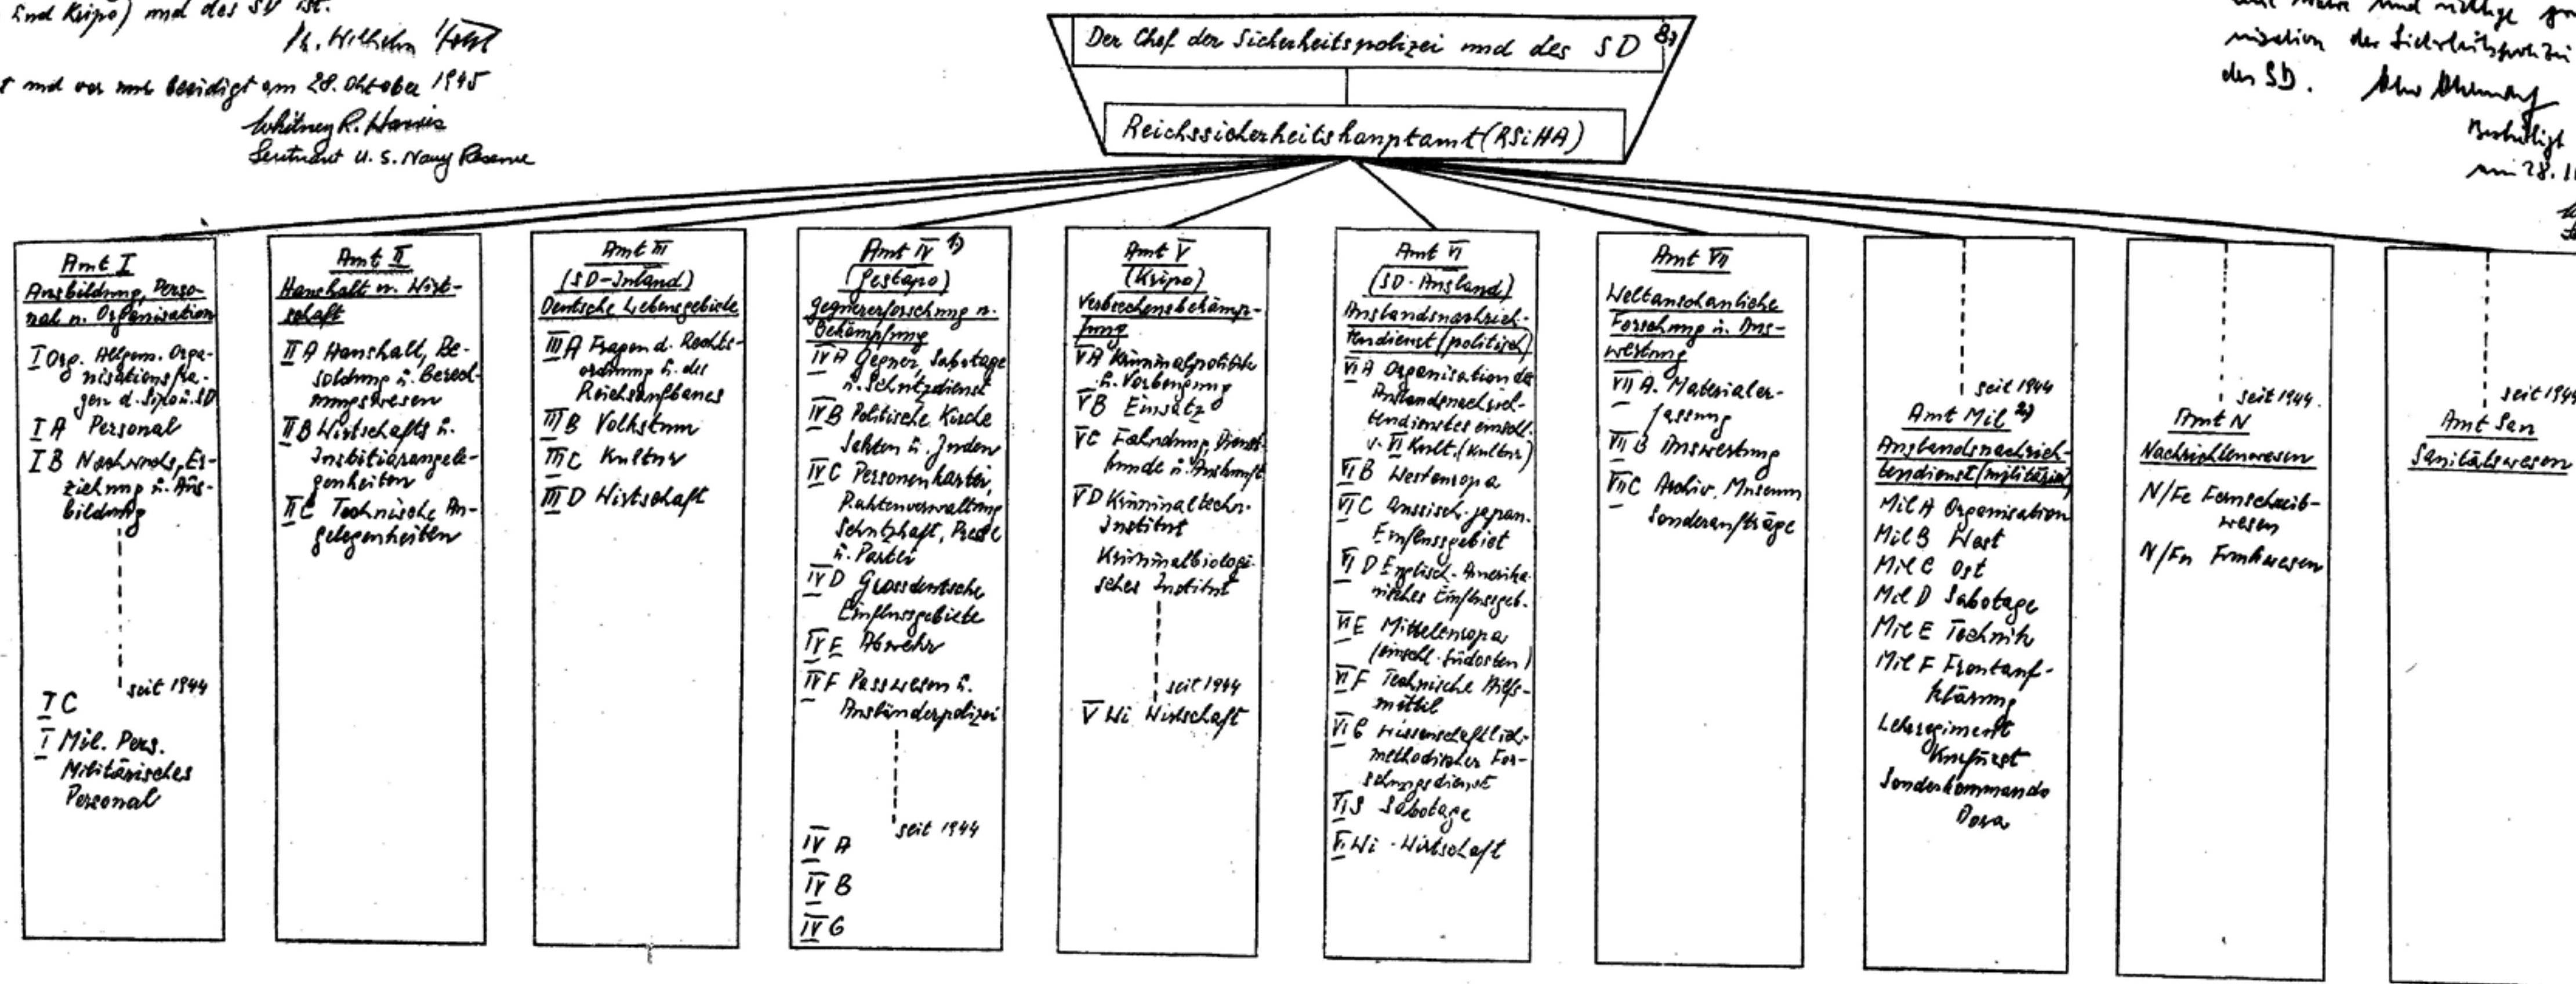 und Kripo) und des SD ist.
Dr. Wilhelm Höttl
und vor mir beeidigt am 28. Oktober 1945
Whitney R. Harris
Leutnant U.S. Navy Reserve
Der Chef der Sicherheitspolizei und des SD 8)
Reichssicherheitshauptamt (RSiHA)
und richtige
nisation der Sicherheitspolizei
des SD.
am 28.
Amt I
Ausbildung, Perso-
nal u. Organisation
I Org. Allgem. Orga-
nisationsfra-
gen d. Sipo u. SD
I A Personal
I B Nachwuchs, Er-
ziehung u. Aus-
bildung
seit 1944
I C
I Mil. Pers.
Militärisches
Personal
Amt II
Haushalt u. Wirt-
schaft
II A Haushalt, Be-
soldung u. Berech-
nungswesen
II B Wirtschafts u.
Justitiarangele-
genheiten
II C Technische An-
gelegenheiten
Amt III
(SD-Inland)
Deutsche Lebensgebiete
III A Fragen d. Rechts-
ordnung u. des
Reichsaufbaues
III B Volkstum
III C Kultur
III D Wirtschaft
Amt IV 1)
(Gestapo)
Gegnererforschung u.
Bekämpfung
IV A Gegner, Sabotage
u. Schutzdienst
IV B Politische Kirche
Sekten u. Juden
IV C Personenkartei,
Aktenverwaltung
Schutzhaft, Presse
u. Partei
IV D Grossdeutsche
Einflussgebiete
IV E Abwehr
IV F Passwesen u.
Ausländerpolizei
seit 1944
IV A
IV B
IV G
Amt V
(Kripo)
Verbrechensbekämp-
fung
V A Kriminalpolitik
u. Vorbeugung
V B Einsatz
V C Fahndung, Dienst-
hunde u. Auskunft
V D Kriminaltechn.
Institut
Kriminalbiologi-
sches Institut
seit 1944
V Wi Wirtschaft
Amt VI
(SD-Ausland)
Auslandsnachrich-
tendienst (politisch)
VI A Organisation des
Auslandsnachrich-
tendienstes einschl.
v. VI Kult. (Kultur)
VI B Westeuropa
VI C Russisch-japan.
Einflussgebiet
VI D Englisch-Amerika-
nisches Einflussgeb.
VI E Mitteleuropa
(einschl. Südosten)
VI F Technische Hilfs-
mittel
VI G Wissenschaftlich-
methodischer For-
schungsdienst
VI S Sabotage
VI Wi - Wirtschaft
Amt VII
Weltanschauliche
Forschung u. Aus-
wertung
VII A. Materialer-
fassung
VII B Auswertung
VII C Archiv, Museum
Sonderaufträge
seit 1944
Amt Mil 2)
Auslandsnachrich-
tendienst (militärisch)
Mil A Organisation
Mil B West
Mil C Ost
Mil D Sabotage
Mil E Technik
Mil F Frontauf-
klärung
Lehrregiment
Kurfürst
Sonderkommando
Dora
seit 1944.
Amt N
Nachrichtenwesen
N/Fe Fernschreib-
wesen
N/Fu Funkwesen
seit 1944
Amt San
Sanitätswesen